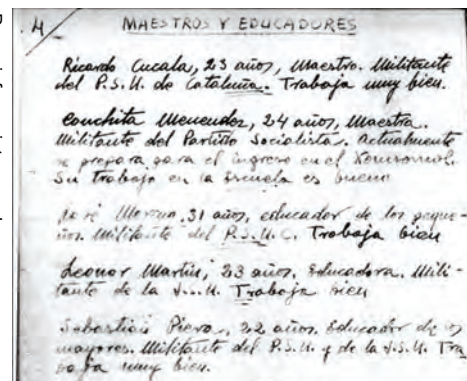 4/ MAESTROS Y EDUCADORES
Ricardo Cucala, 23 años, Maestro. Militante
del P.S.U. de Cataluña. Trabaja muy bien.
Conchita Menendez, 24 años, Maestra.
Militante del Partido Socialista. Actualmente
se prepara para el ingreso en el Komsomol.
Su trabajo en la Escuela es bueno
José Moreno, 31 años, educador de los peque-
ños. Militante del P.S.U.C. Trabaja bien
Leonor Martín, 23 años. Educadora. Mili-
tante de la J.S.U. Trabaja bien
Sebastián Piera, 22 años. Educador de os
mayores. Militante del P.S.U. y de la J.S.U. Tra
baja muy bien.